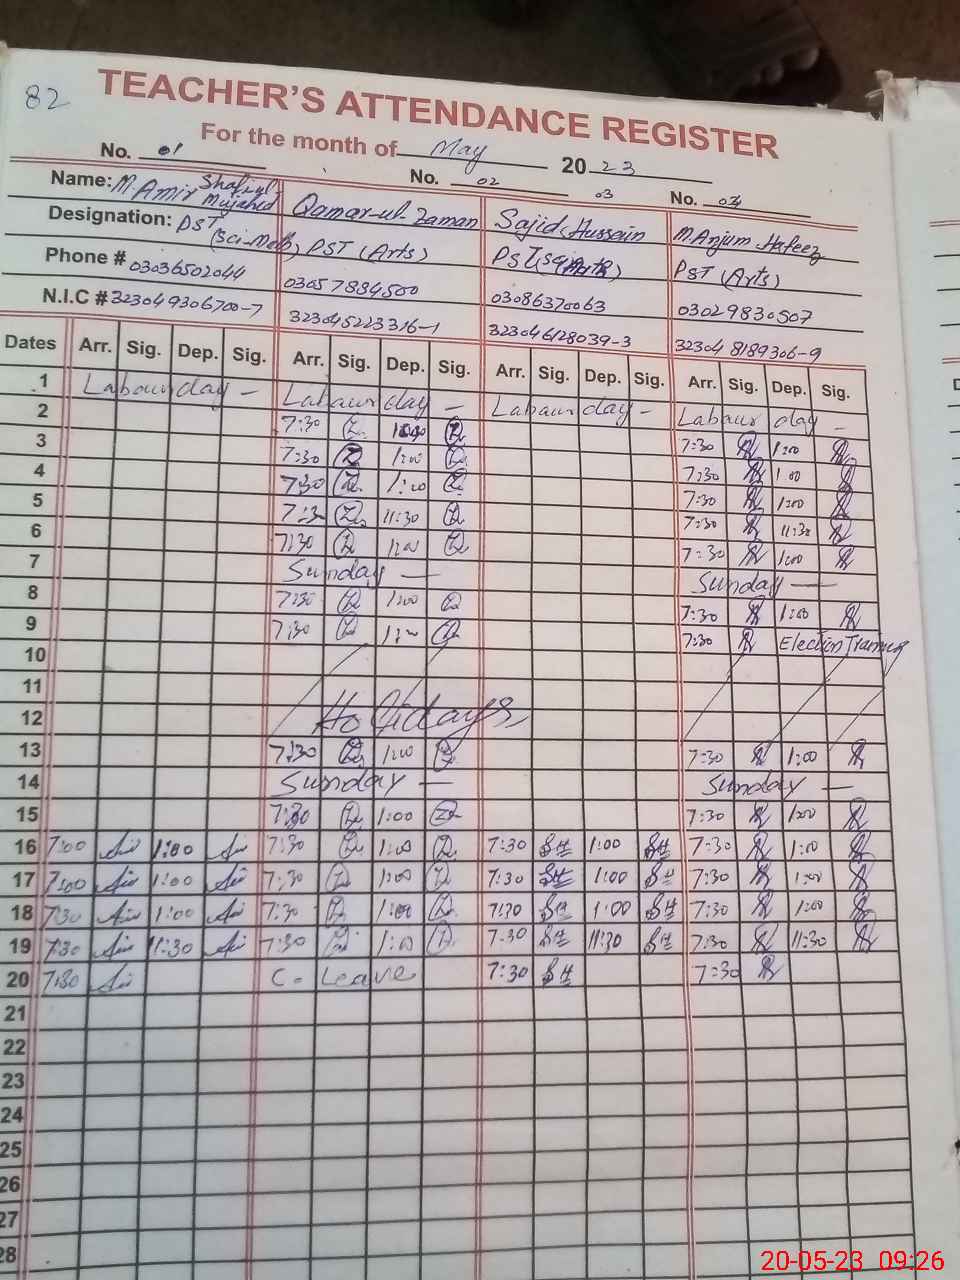 82
TEACHER'S ATTENDANCE REGISTER
For the month of May 2023
No. 01 No. 02 03 No. 04
Name: M. Amir Shafiq Mujahid Qamar-ul-Zaman Sajid Hussain M. Anjum Hafeez
Designation: PST (Sci-Math) PST (Arts) PST PST (Arts)
Phone # 03036502044 03057884500 03086370063 03029830507
N.I.C # 323049306700-7 323045223316-1 323046128039-3 323048189306-9
Dates Arr. Sig. Dep. Sig. Arr. Sig. Dep. Sig. Arr. Sig. Dep. Sig. Arr. Sig. Dep. Sig.
1 Labaur day - Labaur day - Labaur day - Labaur day -
2 7:30 7:30 1:00
3 7:30 1:00 7:30 1:00
4 7:30 1:00 7:30 1:00
5 7:3 11:30 7:30 11:30
6 7:30 1:00 7:30 1:00
7 Sunday — Sunday —
8 7:30 1:00 7:30 1:00
9 7:30 1:00 7:30 Election Training
10
11
12 Holidays
13 7:30 1:00 7:30 1:00
14 Sunday — Sunday —
15 7:30 1:00 7:30 1:00
16 7:00 1:00 7:30 1:00 7:30 SH 1:00 SH 7:30 1:00
17 7:00 1:00 7:30 1:00 7:30 SH 1:00 SH 7:30 1:00
18 7:30 1:00 7:30 1:00 7:30 SH 1:00 SH 7:30 1:00
19 7:30 11:30 7:30 1:00 7:30 SH 11:30 SH 7:30 11:30
20 7:30 C. Leave 7:30 SH 7:30
21
22
23
24
25
26
27
28
20-05-23 09:26